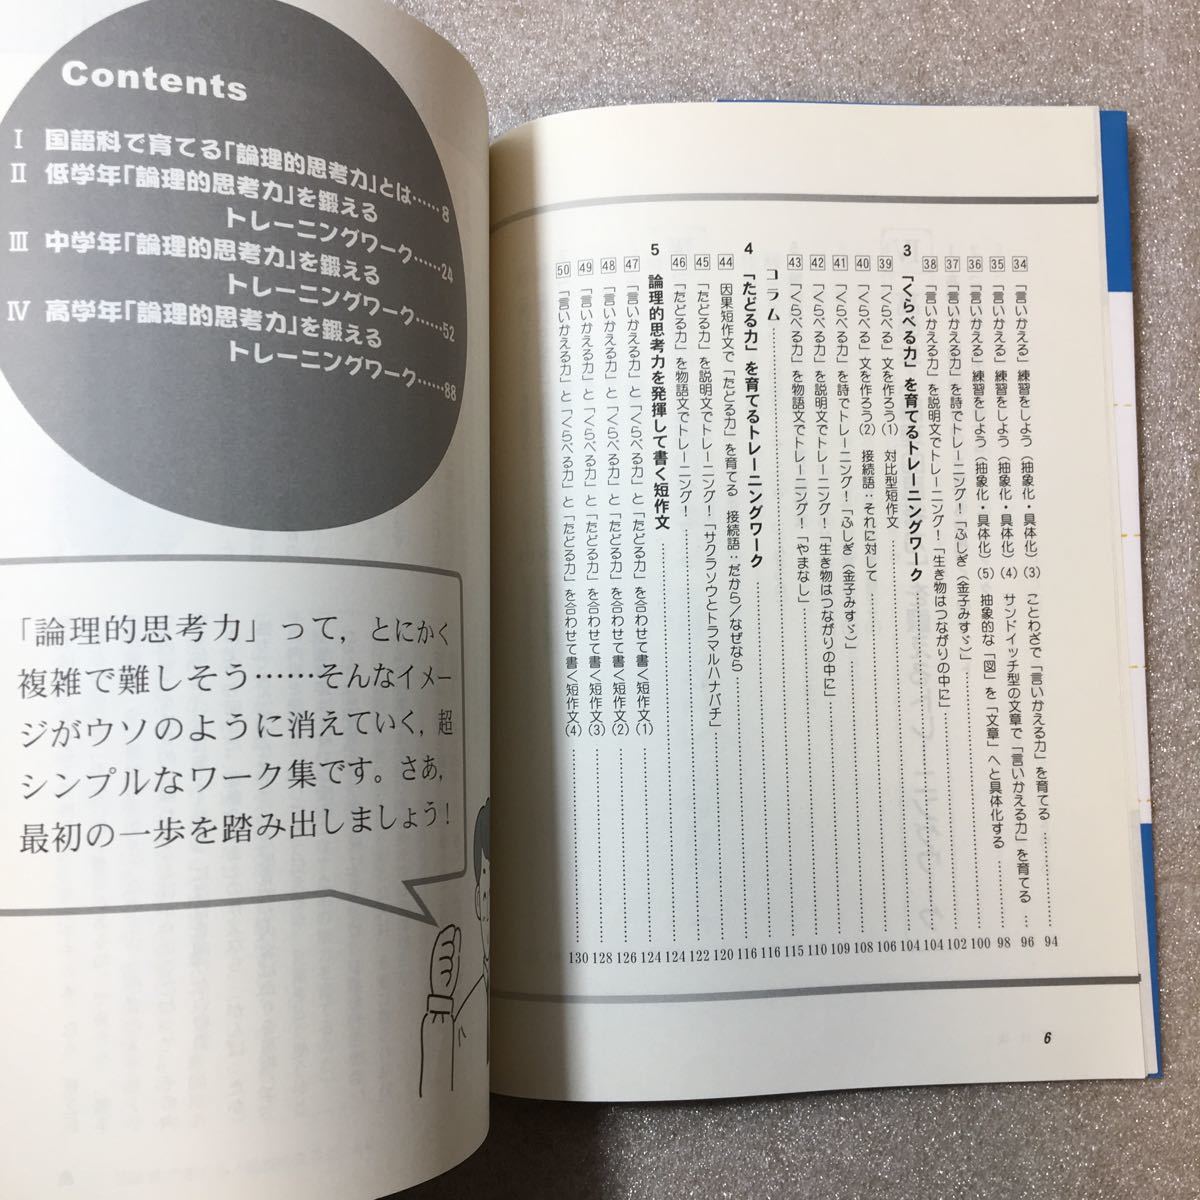 Contents
Ⅰ 国語科で育てる「論理的思考力」とは……8
Ⅱ 低学年「論理的思考力」を鍛える
トレーニングワーク……24
Ⅲ 中学年「論理的思考力」を鍛える
トレーニングワーク……52
Ⅳ 高学年「論理的思考力」を鍛える
トレーニングワーク……88
「論理的思考力」って，とにかく
複雑で難しそう……そんなイメー
ジがウソのように消えていく，超
シンプルなワーク集です。さあ，
最初の一歩を踏み出しましょう！
34 「言いかえる」練習をしよう（抽象化・具体化）(3) ことわざで「言いかえる力」を育てる 94
35 「言いかえる」練習をしよう（抽象化・具体化）(4) サンドイッチ型の文章で「言いかえる力」を育てる 96
36 「言いかえる」練習をしよう（抽象化・具体化）(5) 抽象的な「図」を「文章」へと具体化する 98
37 「言いかえる力」を詩でトレーニング！「ふしぎ（金子みすゞ）」 100
38 「言いかえる力」を説明文でトレーニング！「生き物はつながりの中に」 102
3 「くらべる力」を育てるトレーニングワーク 104
39 「くらべる」文を作ろう(1) 対比型短作文 104
40 「くらべる」文を作ろう(2) 接続語：それに対して 106
41 「くらべる力」を詩でトレーニング！「ふしぎ（金子みすゞ）」 108
42 「くらべる力」を説明文でトレーニング！「生き物はつながりの中に」 109
43 「くらべる力」を物語文でトレーニング！「やまなし」 110
コラム 115
4 「たどる力」を育てるトレーニングワーク 116
44 因果短作文で「たどる力」を育てる 接続語：だから／なぜなら 116
45 「たどる力」を説明文でトレーニング！「サクラソウとトラマルハナバチ」 120
46 「たどる力」を物語文でトレーニング！ 122
5 論理的思考力を発揮して書く短作文 124
47 「言いかえる力」と「くらべる力」と「たどる力」を合わせて書く短作文(1) 124
48 「言いかえる力」と「くらべる力」と「たどる力」を合わせて書く短作文(2) 126
49 「言いかえる力」と「くらべる力」と「たどる力」を合わせて書く短作文(3) 128
50 「言いかえる力」と「くらべる力」と「たどる力」を合わせて書く短作文(4) 130
6